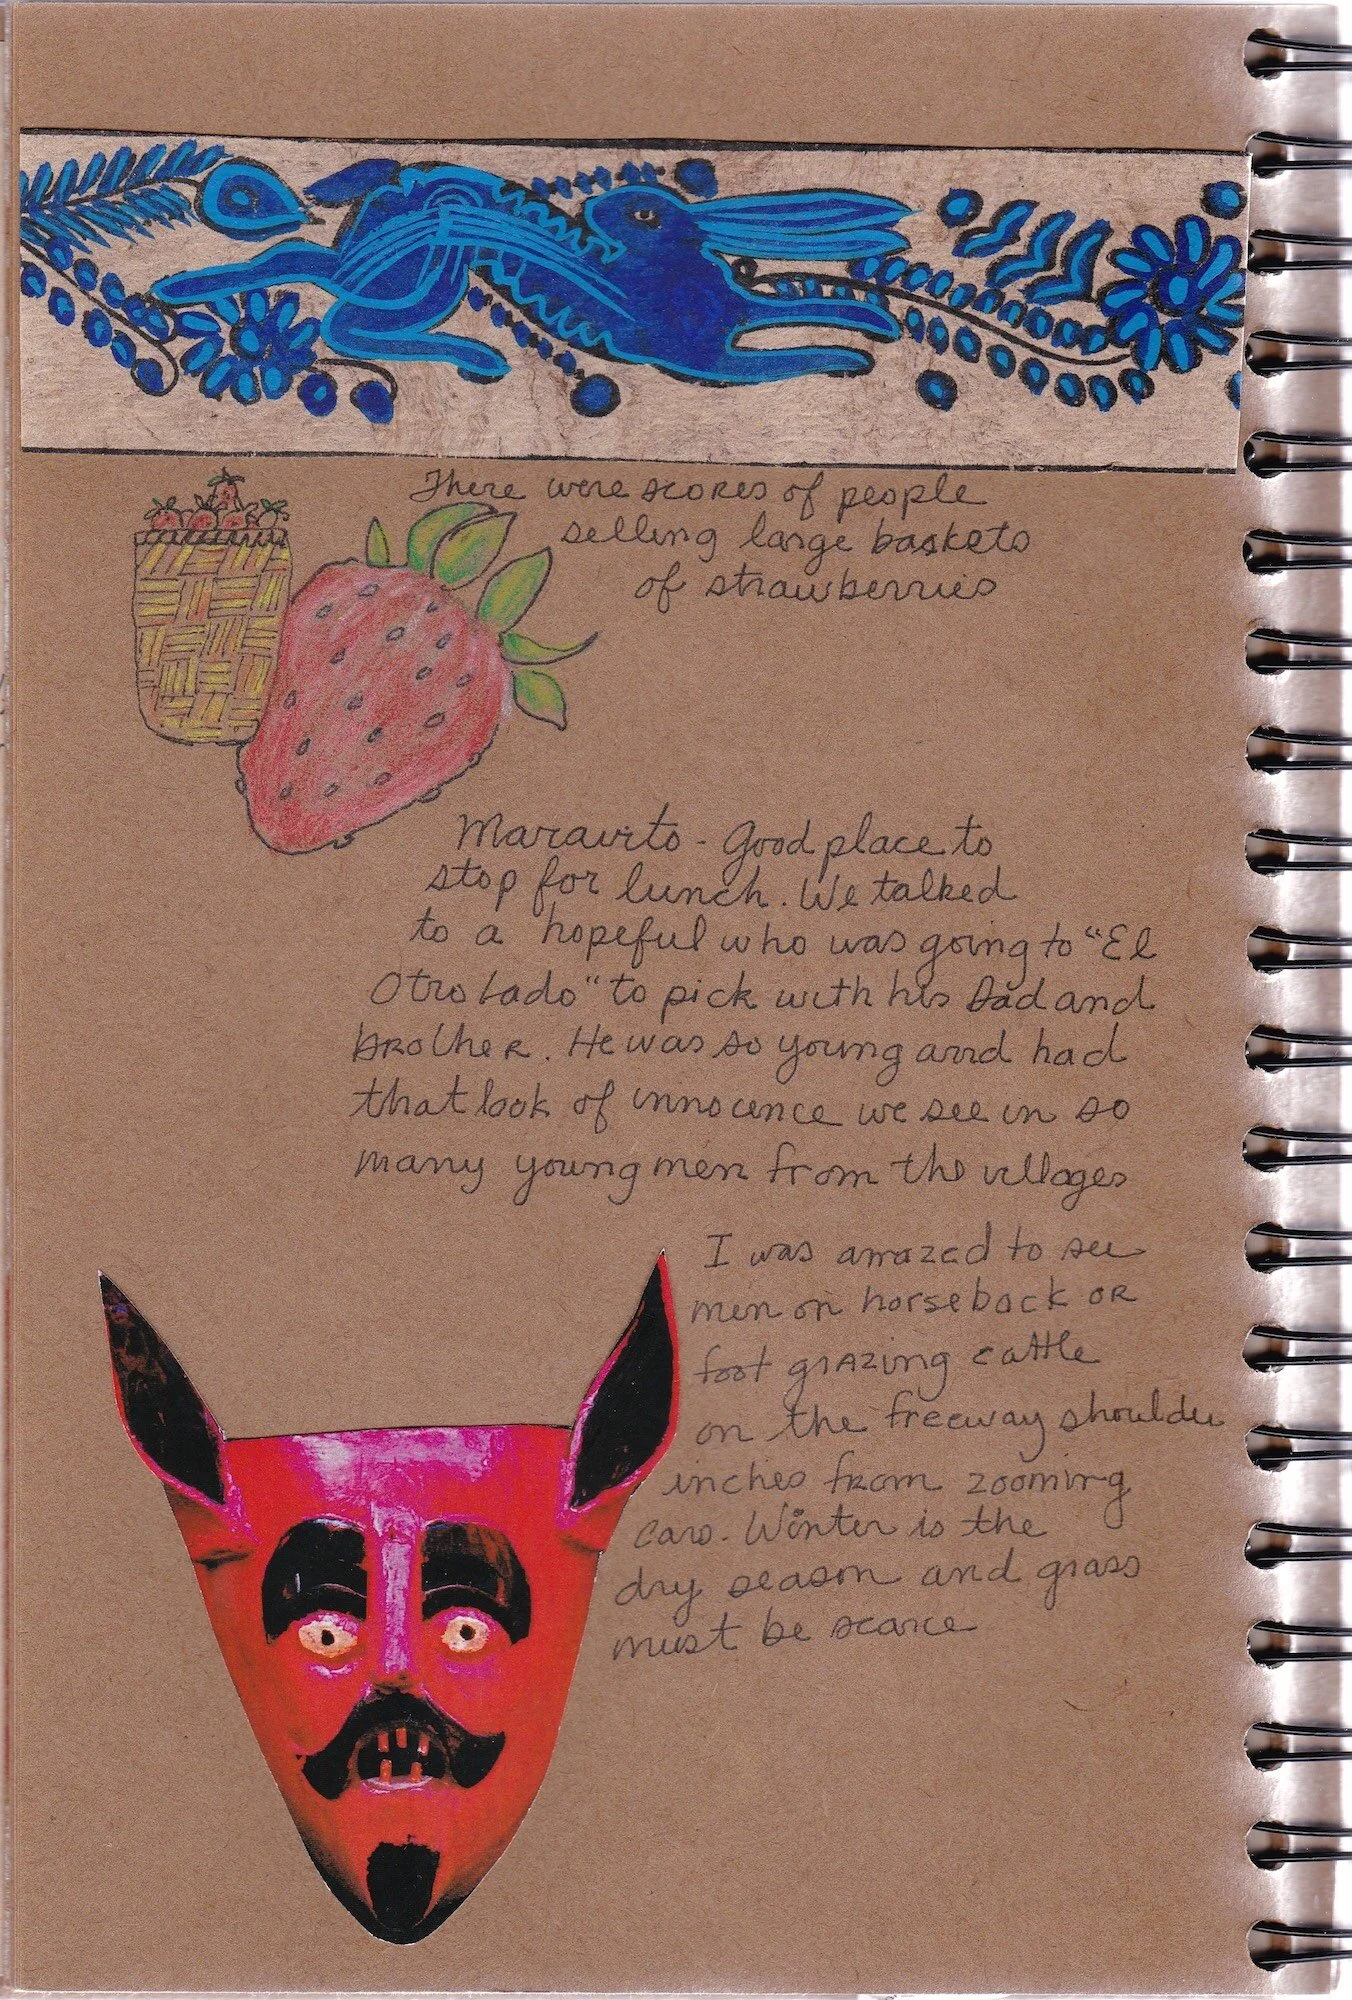 There were scores of people
selling large baskets
of strawberries
Maravito - Good place to
stop for lunch. We talked
to a hopeful who was going to "El
Otro Lado" to pick with his Dad and
brother. He was so young and had
that look of innocence we see in so
many young men from the villages
I was amazed to see
men on horseback or
foot grazing cattle
on the freeway shoulder
inches from zooming
cars. Winter is the
dry season and grass
must be scarce